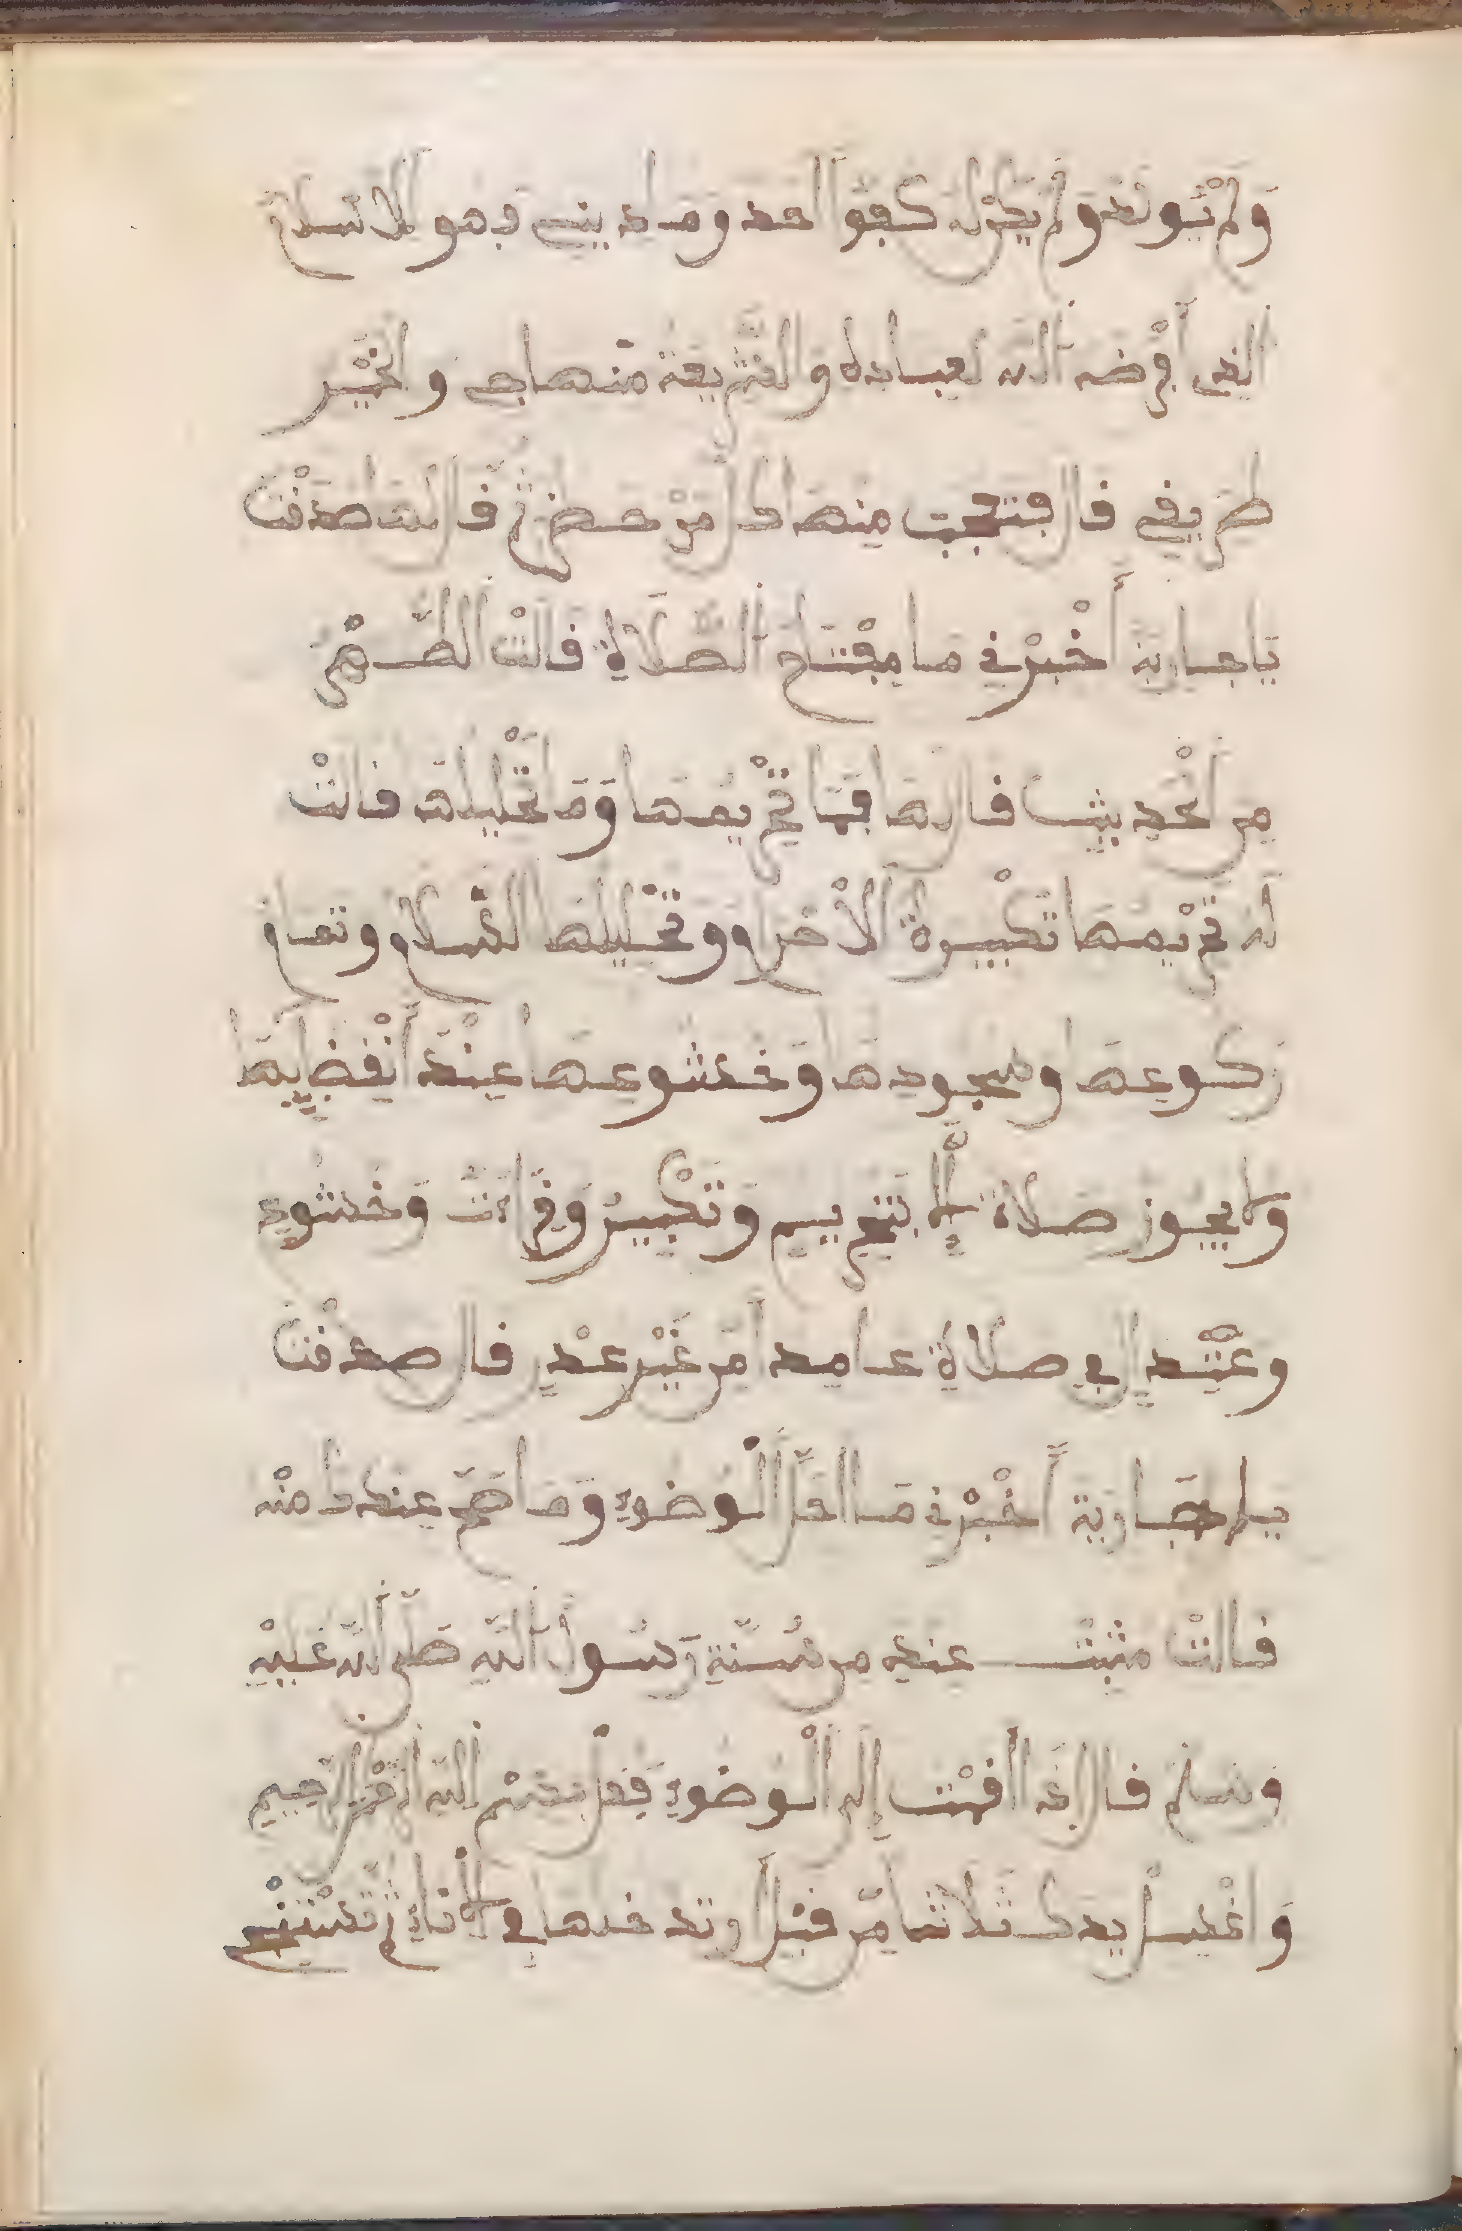 وَلَمْ يُولَدْ وَلَمْ يَكُنْ لَهُ كُفُوًا أَحَد وما دينى فهو الاسلام
الذى أفرضه الله لعباده والشّريعة منهاجى والخَيْر
طريفى فال فتعجب منها كل من حضر ثم فال لها صدفْت
يا جارية أَخْبرْنى ما مِفْتَاح الصَّلَاة فَالَتْ الطُّهْر
مِن الْحَديث فال لها فما تحْريمها وَمَا تحْليلها فالتْ
له تحْريمها تكْبيرة الاحْرام وتحْليلها السلام وتمام
ركوعها وسجودها وَخشوعها عِنْدَ
ولا يجوز صلاة إلَّا بتحريم وَتَكْبِيرُ وَفِرَاءَت وَخشُوع
في صلاة عامدا من غَيْر عذر فال صدفْت
يا جارية أخْبرْنى ما الْوُضوءِ وما صَحّ عندك منْه
فالتْ عندِي من سُنَّة رسُول اللهِ صَلَّى اللهُ عَلَيْهِ
وسلم فال إِذَا أَفَمْت إِلى الْوُضوءِ فَفل بِسْمِ اللهِ الرَّحْمَن الرَّحِيمِ
وَاغْسِل يدك ثلاثا مِن فَبْل أن تدخلها في الْأَنَاءِ ثم تَسْتَنْج